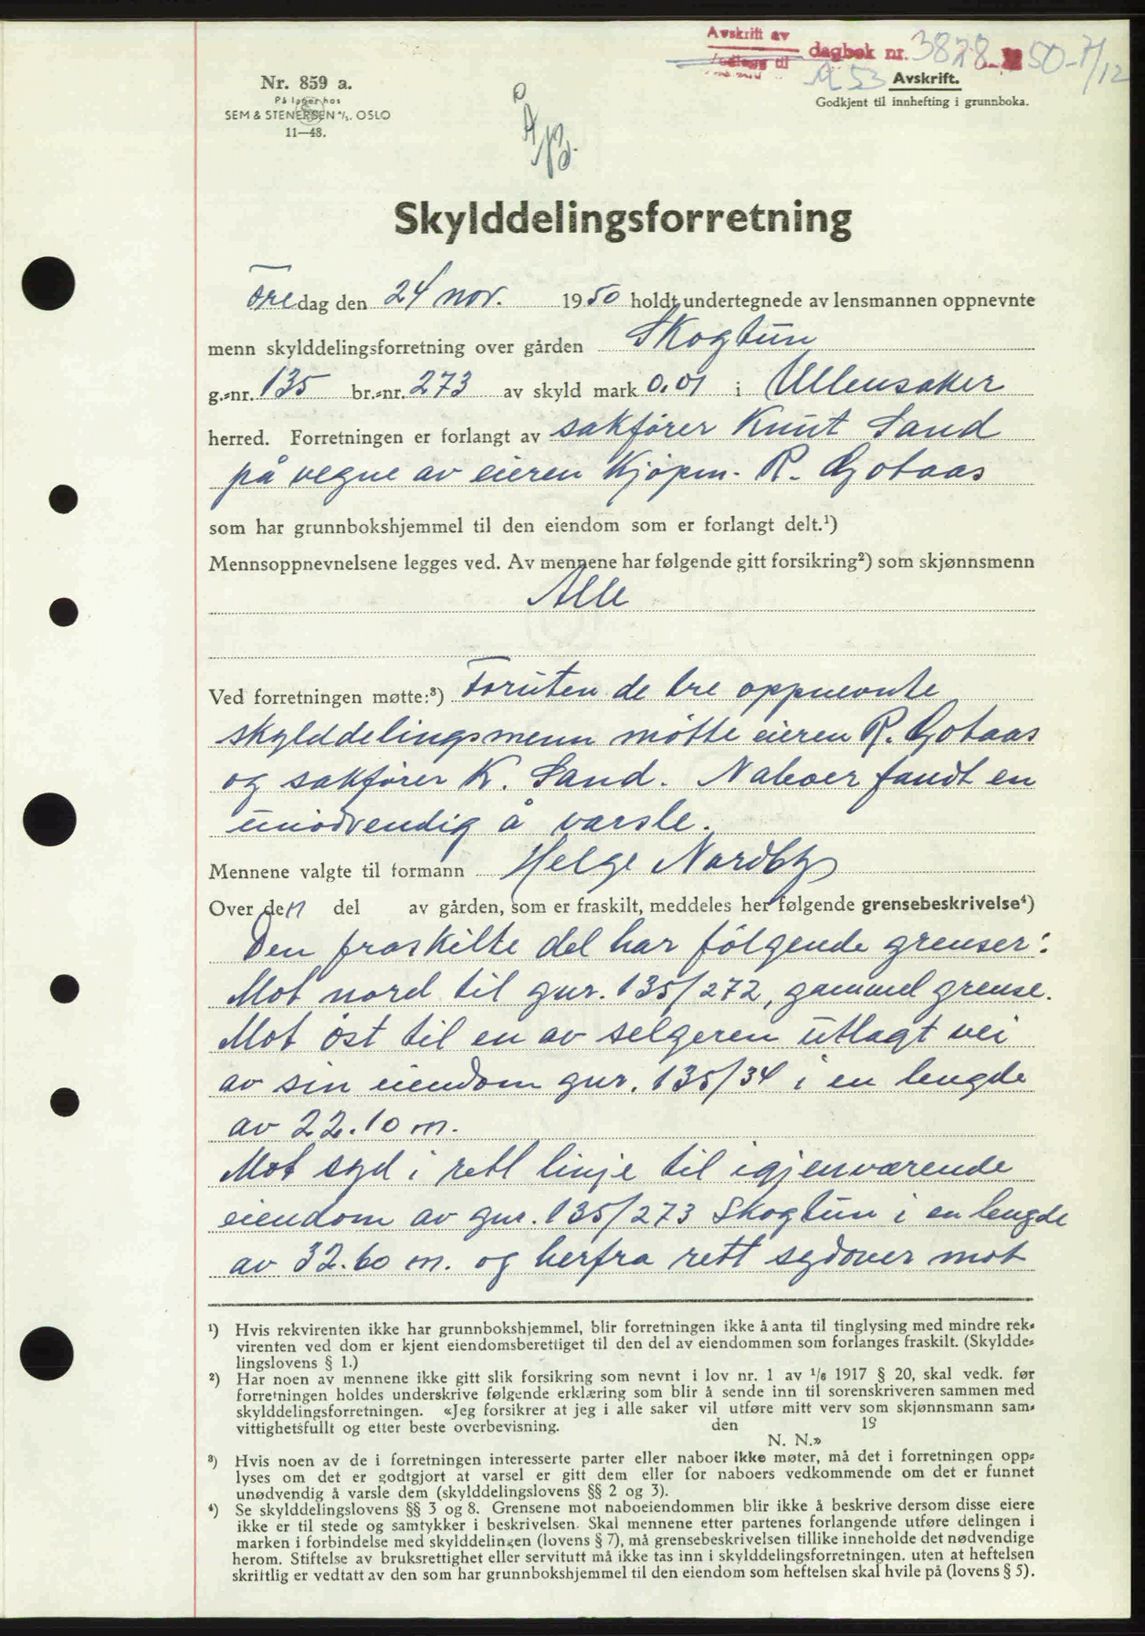 Avskrift av
dagbok nr. 3828 - 50 - 7/12
A 53
Avskrift.
Godkjent til innhefting i grunnboka.
Nr. 859 a.
På lager hos
SEM & STENERSEN A/S. OSLO
11—48.
Skylddelingsforretning
Fredag den 24 nov. 1950 holdt undertegnede av lensmannen oppnevnte
menn skylddelingsforretning over gården Skogtun
g.-nr. 135 br.-nr. 273 av skyld mark 0.01 i Ullensaker
herred. Forretningen er forlangt av sakfører Knut Sand
på vegne av eieren Kjøpm. R. Gotaas
som har grunnbokshjemmel til den eiendom som er forlangt delt.¹)
Mennsoppnevnelsene legges ved. Av mennene har følgende gitt forsikring²) som skjønnsmenn
Alle
Ved forretningen møtte:³) Foruten de tre oppnevnte
skylddelingsmenn møtte eieren R. Gotaas
og sakfører K. Sand. Naboer fandt en
unødvendig å varsle.
Mennene valgte til formann Helge Nordby
Over den del av gården, som er fraskilt, meddeles her følgende grensebeskrivelse⁴)
Den fraskilte del har følgende grenser:
Mot nord til gnr. 135/272, gammel grense.
Mot øst til en av selgeren utlagt vei
av sin eiendom gnr. 135/34 i en lengde
av 22.10 m.
Mot syd i rett linje til igjenværende
eiendom av gnr. 135/273 Skogtun i en lengde
av 32.60 m. og herfra rett sydover mot
¹) Hvis rekvirenten ikke har grunnbokshjemmel, blir forretningen ikke å anta til tinglysing med mindre rek-
virenten ved dom er kjent eiendomsberettiget til den del av eiendommen som forlanges fraskilt. (Skyldde-
lingslovens § 1.)
²) Har noen av mennene ikke gitt slik forsikring som nevnt i lov nr. 1 av 1/6 1917 § 20, skal vedk. før
forretningen holdes underskrive følgende erklæring som blir å sende inn til sorenskriveren sammen med
skylddelingsforretningen. «Jeg forsikrer at jeg i alle saker vil utføre mitt verv som skjønnsmann sam-
vittighetsfullt og etter beste overbevisning. den 19
N. N.»
³) Hvis noen av de i forretningen interesserte parter eller naboer ikke møter, må det i forretningen opp-
lyses om det er godtgjort at varsel er gitt dem eller for naboers vedkommende om det er funnet
unødvendig å varsle dem (skylddelingslovens §§ 2 og 3).
⁴) Se skylddelingslovens §§ 3 og 8. Grensene mot naboeiendommen blir ikke å beskrive dersom disse eiere
ikke er til stede og samtykker i beskrivelsen. Skal mennene etter partenes forlangende utføre delingen i
marken i forbindelse med skylddelingen (lovens § 7), må grensebeskrivelsen tillike inneholde det nødvendige
herom. Stiftelse av bruksrettighet eller servitutt må ikke tas inn i skylddelingsforretningen. uten at heftelsen
skriftlig er vedtatt av den som har grunnbokshjemmel til den eiendom som heftelsen skal hvile på (lovens § 5).